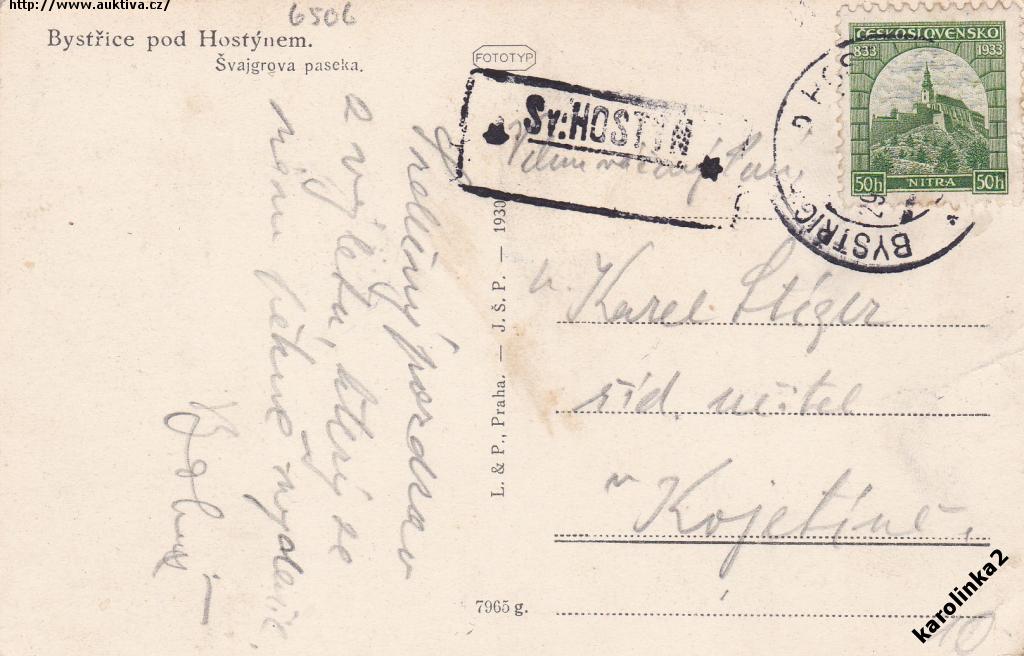 http://www.auktiva.cz/
6506
Bystřice pod Hostýnem.
Švajgrova paseka.
FOTOTYP
ČESKOSLOVENSKO
833 1933
50h NITRA 50h
Sv: HOSTÝN
BYSTŘIC
Srdečný pozdrav
z výletu, který se
nám pěkně vydařil.
L. & P., Praha. — J. Š. P. — 1930
7965 g.
Karel Stéger
říd. učitel
v Kojetíně.
karolinka2
10